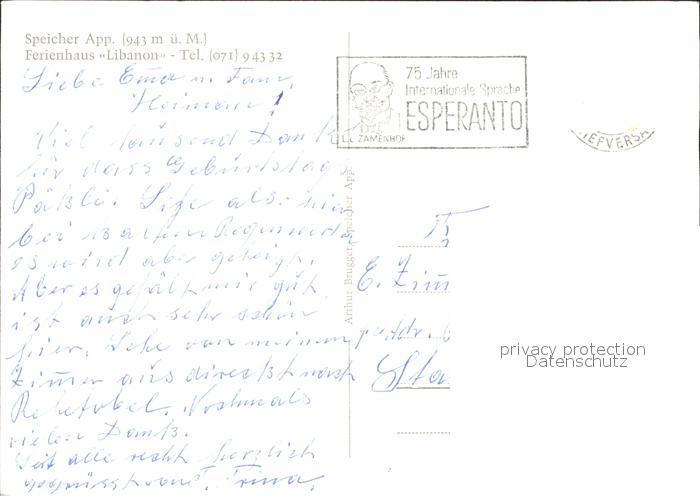 Speicher App. (943 m ü. M.)
Ferienhaus «Libanon» - Tel. (071) 9 43 32
Liebe Ema u. Fam.
Heimann!
Viel tausend Dank
für dass Geburtstags
Päkli. Size als. hier
bei Regenwetter
es wird aber geheizt.
Aber es gefält mir gut,
ist auch sehr schön
hier. Sehe von meinem
Zimmer aus direckt nach
Rehetobel. Nochmals
vielen Dank.
Seit alle recht herzlich
gegrüsst von Trina.
Arthur Brugger, Speicher App.
75 Jahre
Internationale Sprache
ESPERANTO
L.L. ZAMENHOF
IEFVERSA
Fr
E. Zim
Sta
privacy protection
Datenschutz